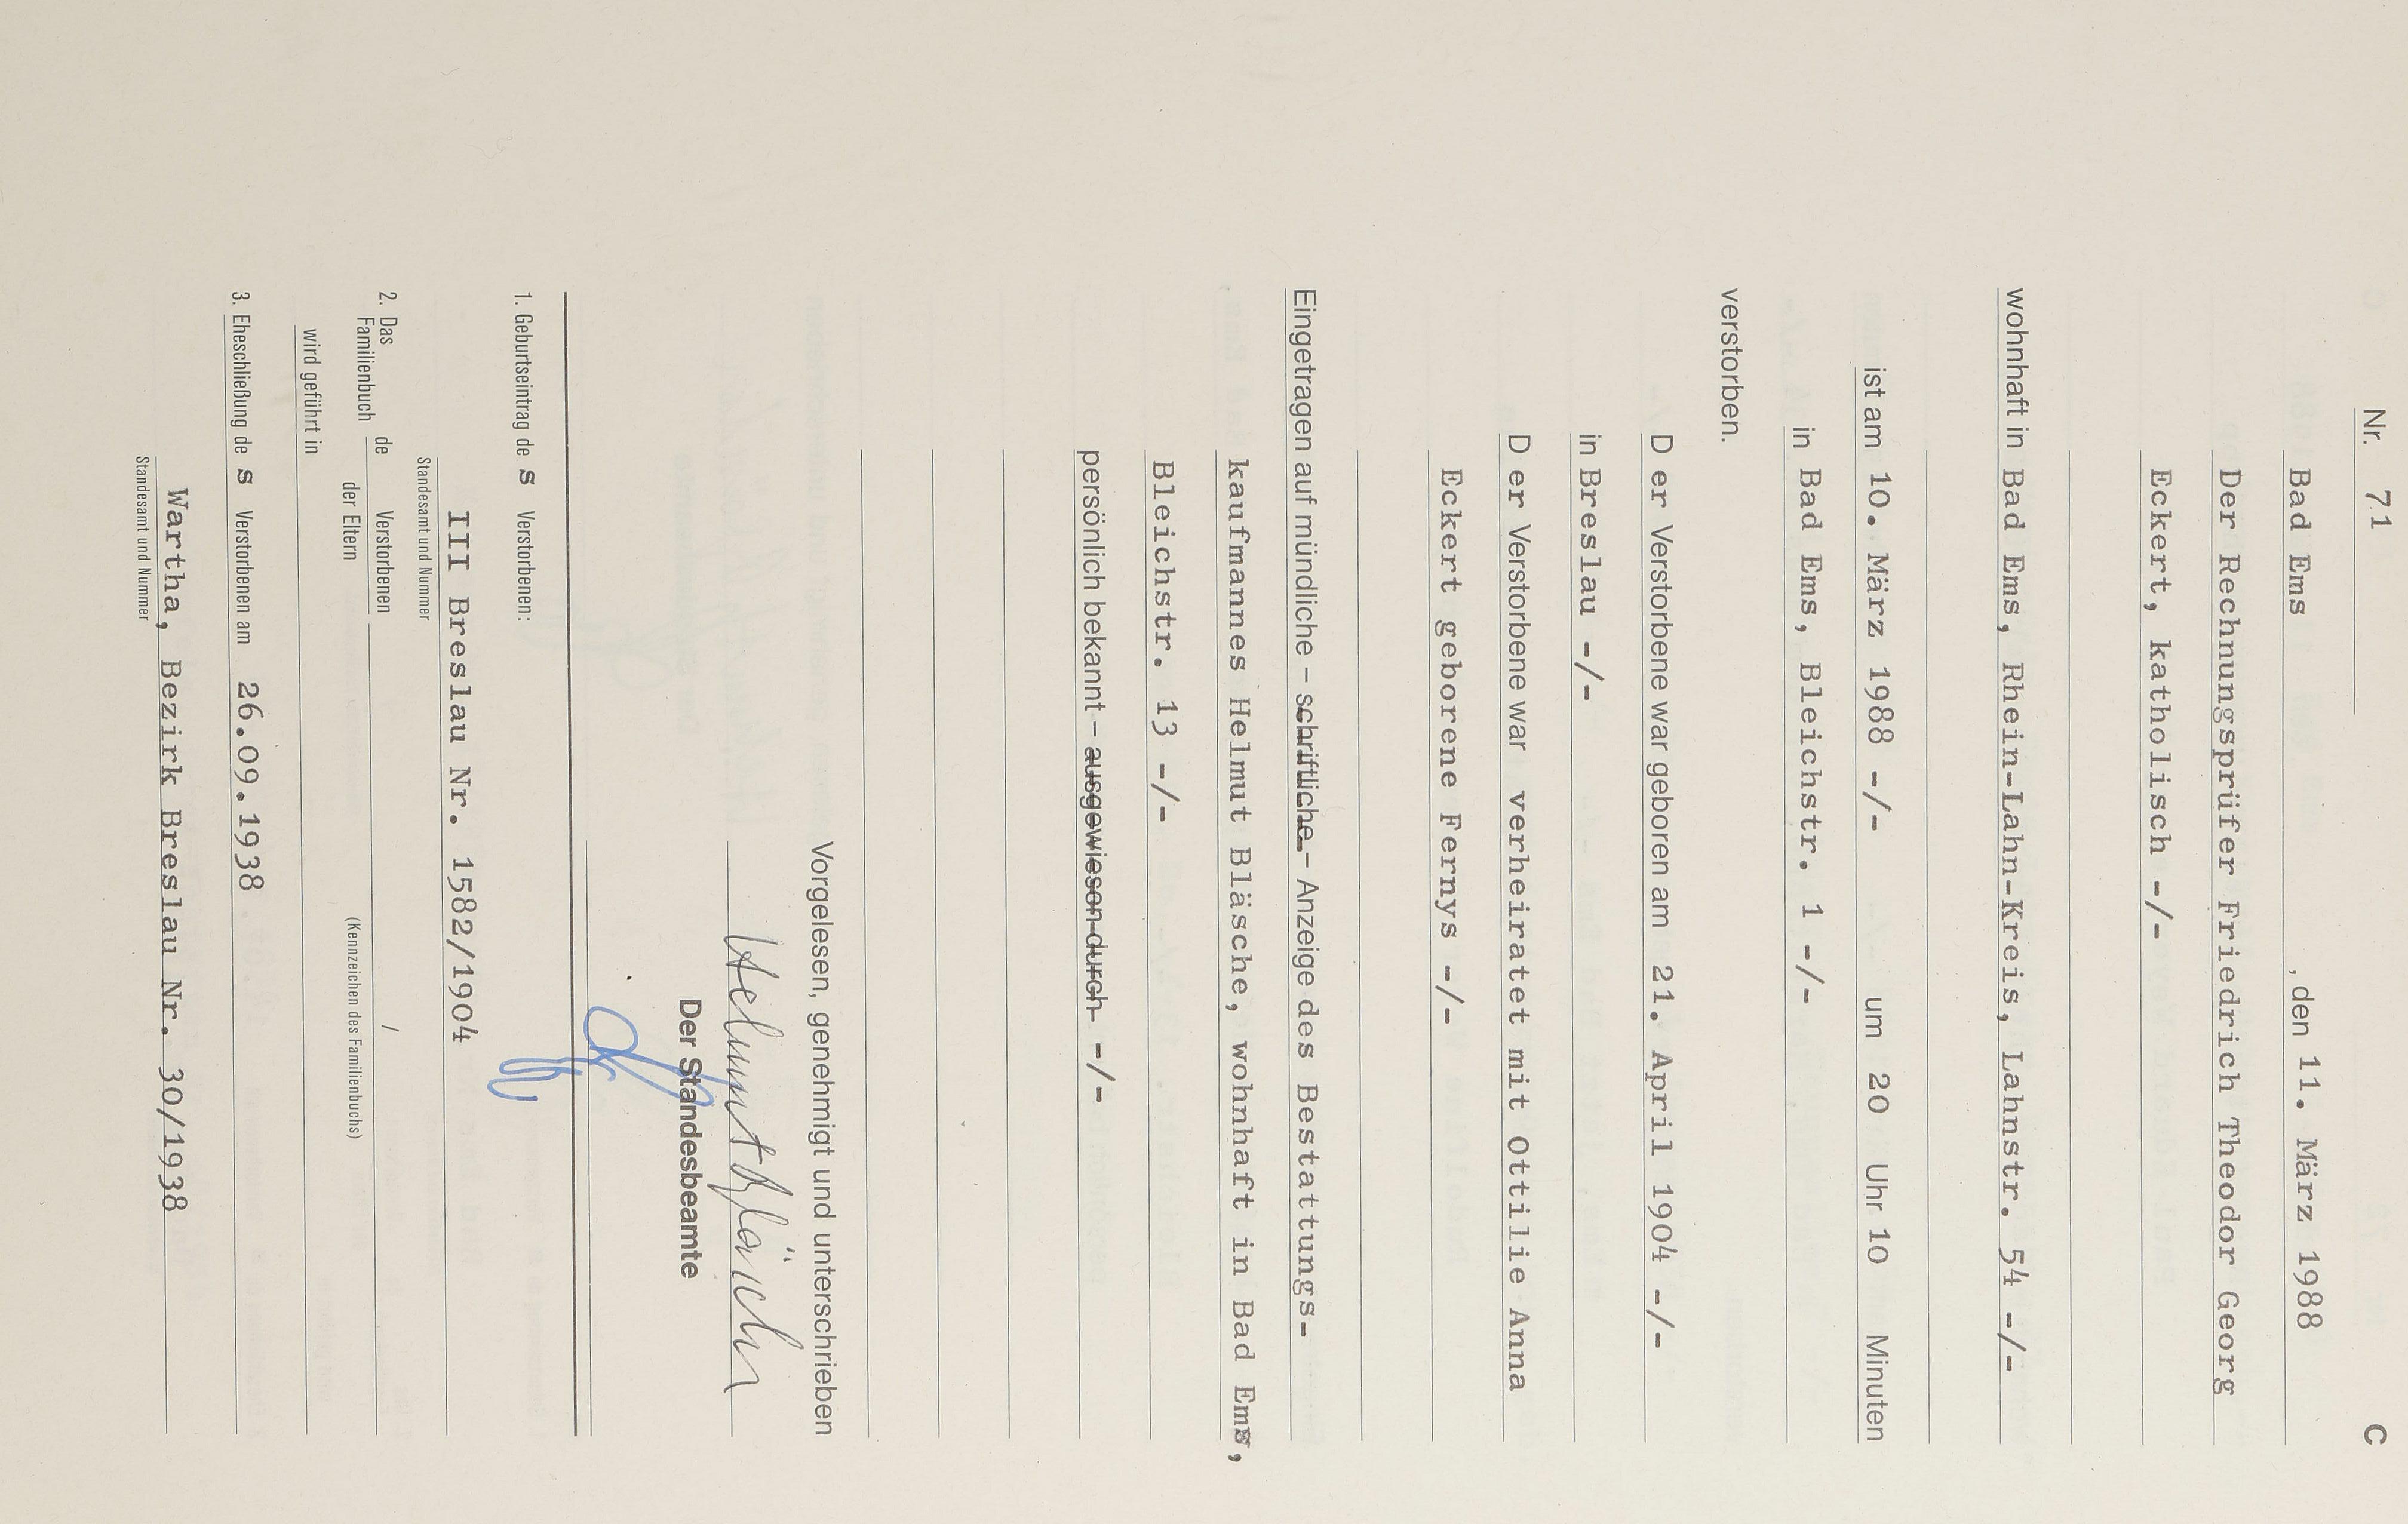 Nr. 71 C
Bad Ems , den 11. März 1988
Der Rechnungsprüfer Friedrich Theodor Georg
Eckert, katholisch -/-
wohnhaft in Bad Ems, Rhein-Lahn-Kreis, Lahnstr. 54 -/-
ist am 10. März 1988 -/- um 20 Uhr 10 Minuten
in Bad Ems, Bleichstr. 1 -/-
verstorben.
D er Verstorbene war geboren am 21. April 1904 -/-
in Breslau -/-
D er Verstorbene war verheiratet mit Ottilie Anna
Eckert geborene Fernys -/-
Eingetragen auf mündliche – schriftliche – Anzeige des Bestattungs-
kaufmannes Helmut Bläsche, wohnhaft in Bad Ems,
Bleichstr. 13 -/-
persönlich bekannt – ausgewiesen durch -/-
Vorgelesen, genehmigt und unterschrieben
Helmut Bläsche
Der Standesbeamte
1. Geburtseintrag de s Verstorbenen:
III Breslau Nr. 1582/1904
Standesamt und Nummer
2. Das Familienbuch de Verstorbenen /
der Eltern (Kennzeichen des Familienbuchs)
wird geführt in
3. Eheschließung de s Verstorbenen am 26.09.1938
Wartha, Bezirk Breslau Nr. 30/1938
Standesamt und Nummer